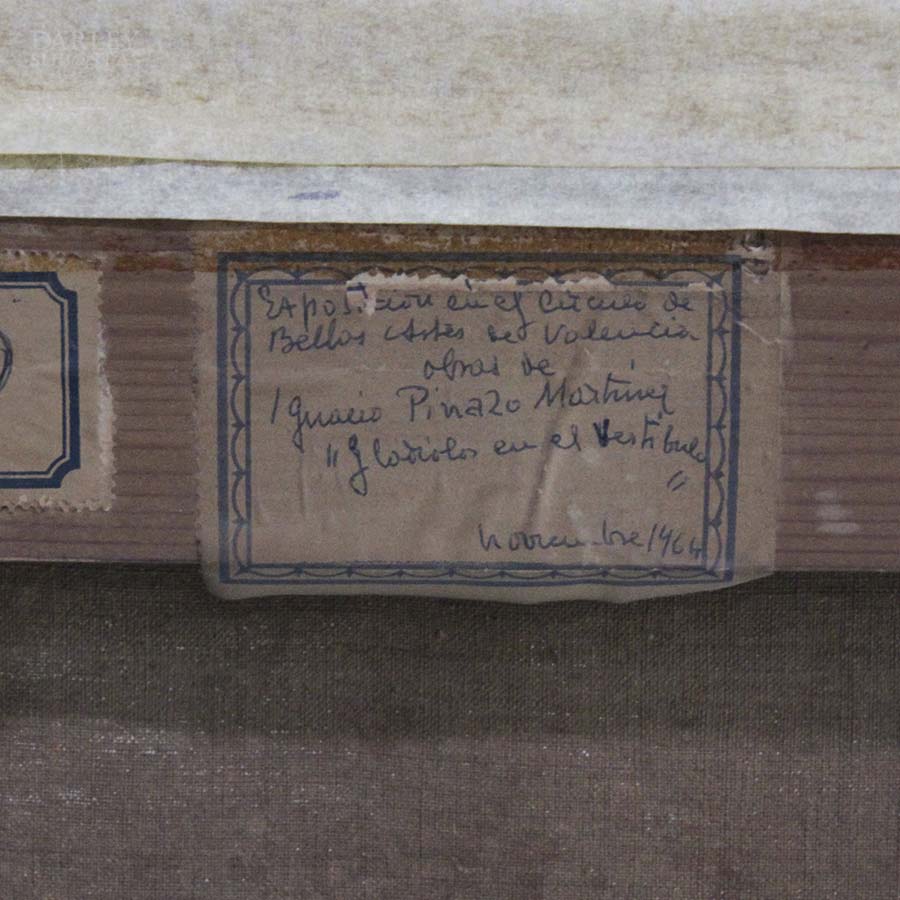 DARLEY
SUBASTAS
Exposición en el Circulo de
Bellas Artes de Valencia
obras de
Ignacio Pinazo Martínez
"Gladiolos en el Vestíbulo
"
Noviembre/1964